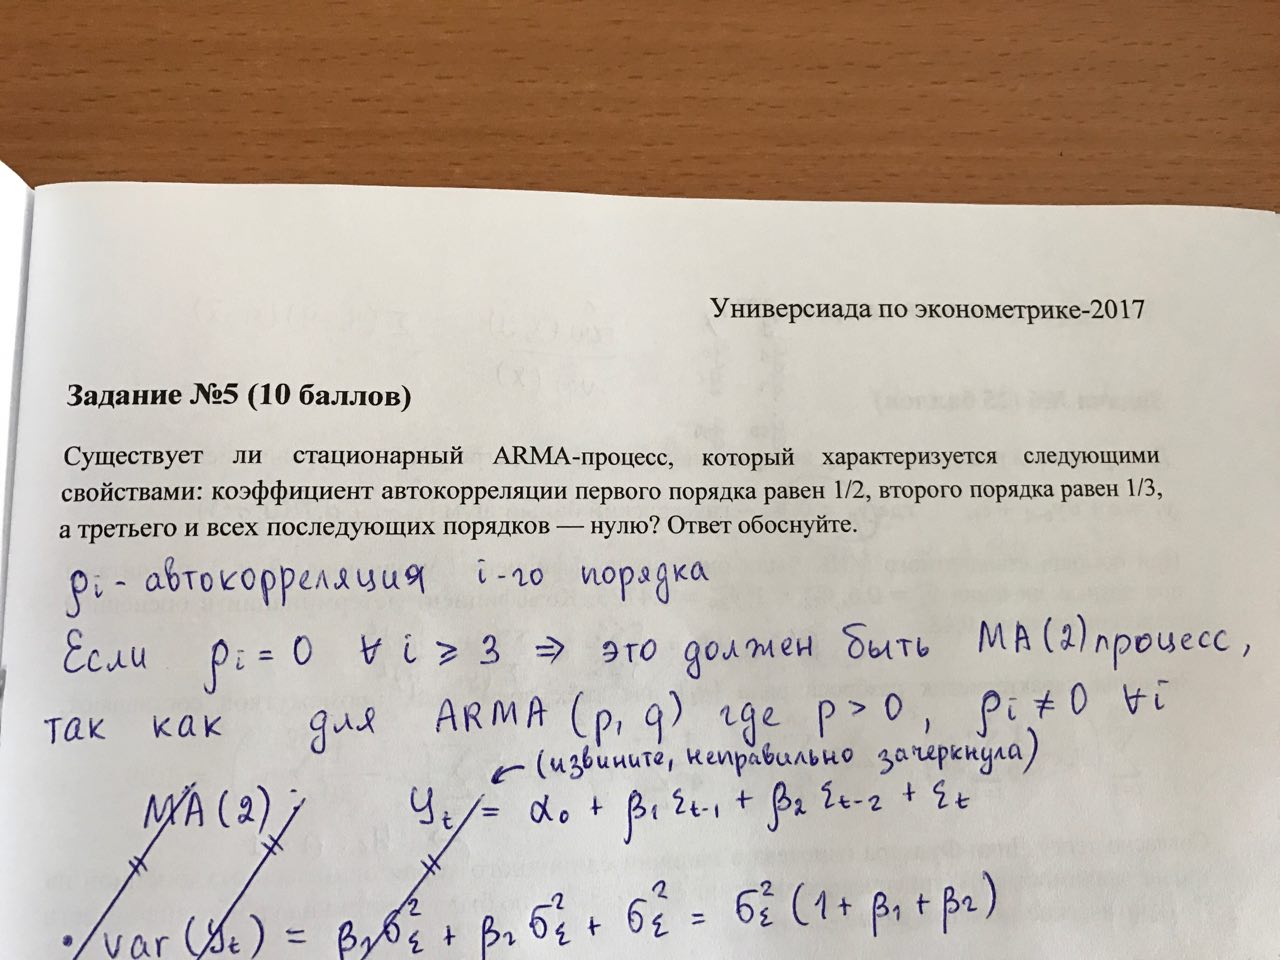 Универсиада по эконометрике-2017
Задание №5 (10 баллов)
Существует ли стационарный ARMA-процесс, который характеризуется следующими
свойствами: коэффициент автокорреляции первого порядка равен 1/2, второго порядка равен 1/3,
а третьего и всех последующих порядков — нулю? Ответ обоснуйте.
ρi - автокорреляция i-го порядка
Если ρi = 0 ∀ i ⩾ 3 ⇒ это должен быть MA(2) процесс,
так как для ARMA (p, q) где p > 0, ρi ≠ 0 ∀i
(извините, неправильно зачеркнула)
MA(2): yt = α0 + β1 εt-1 + β2 εt-2 + εt
• var(yt) = β1 σε² + β2 σε² + σε² = σε² (1 + β1 + β2)